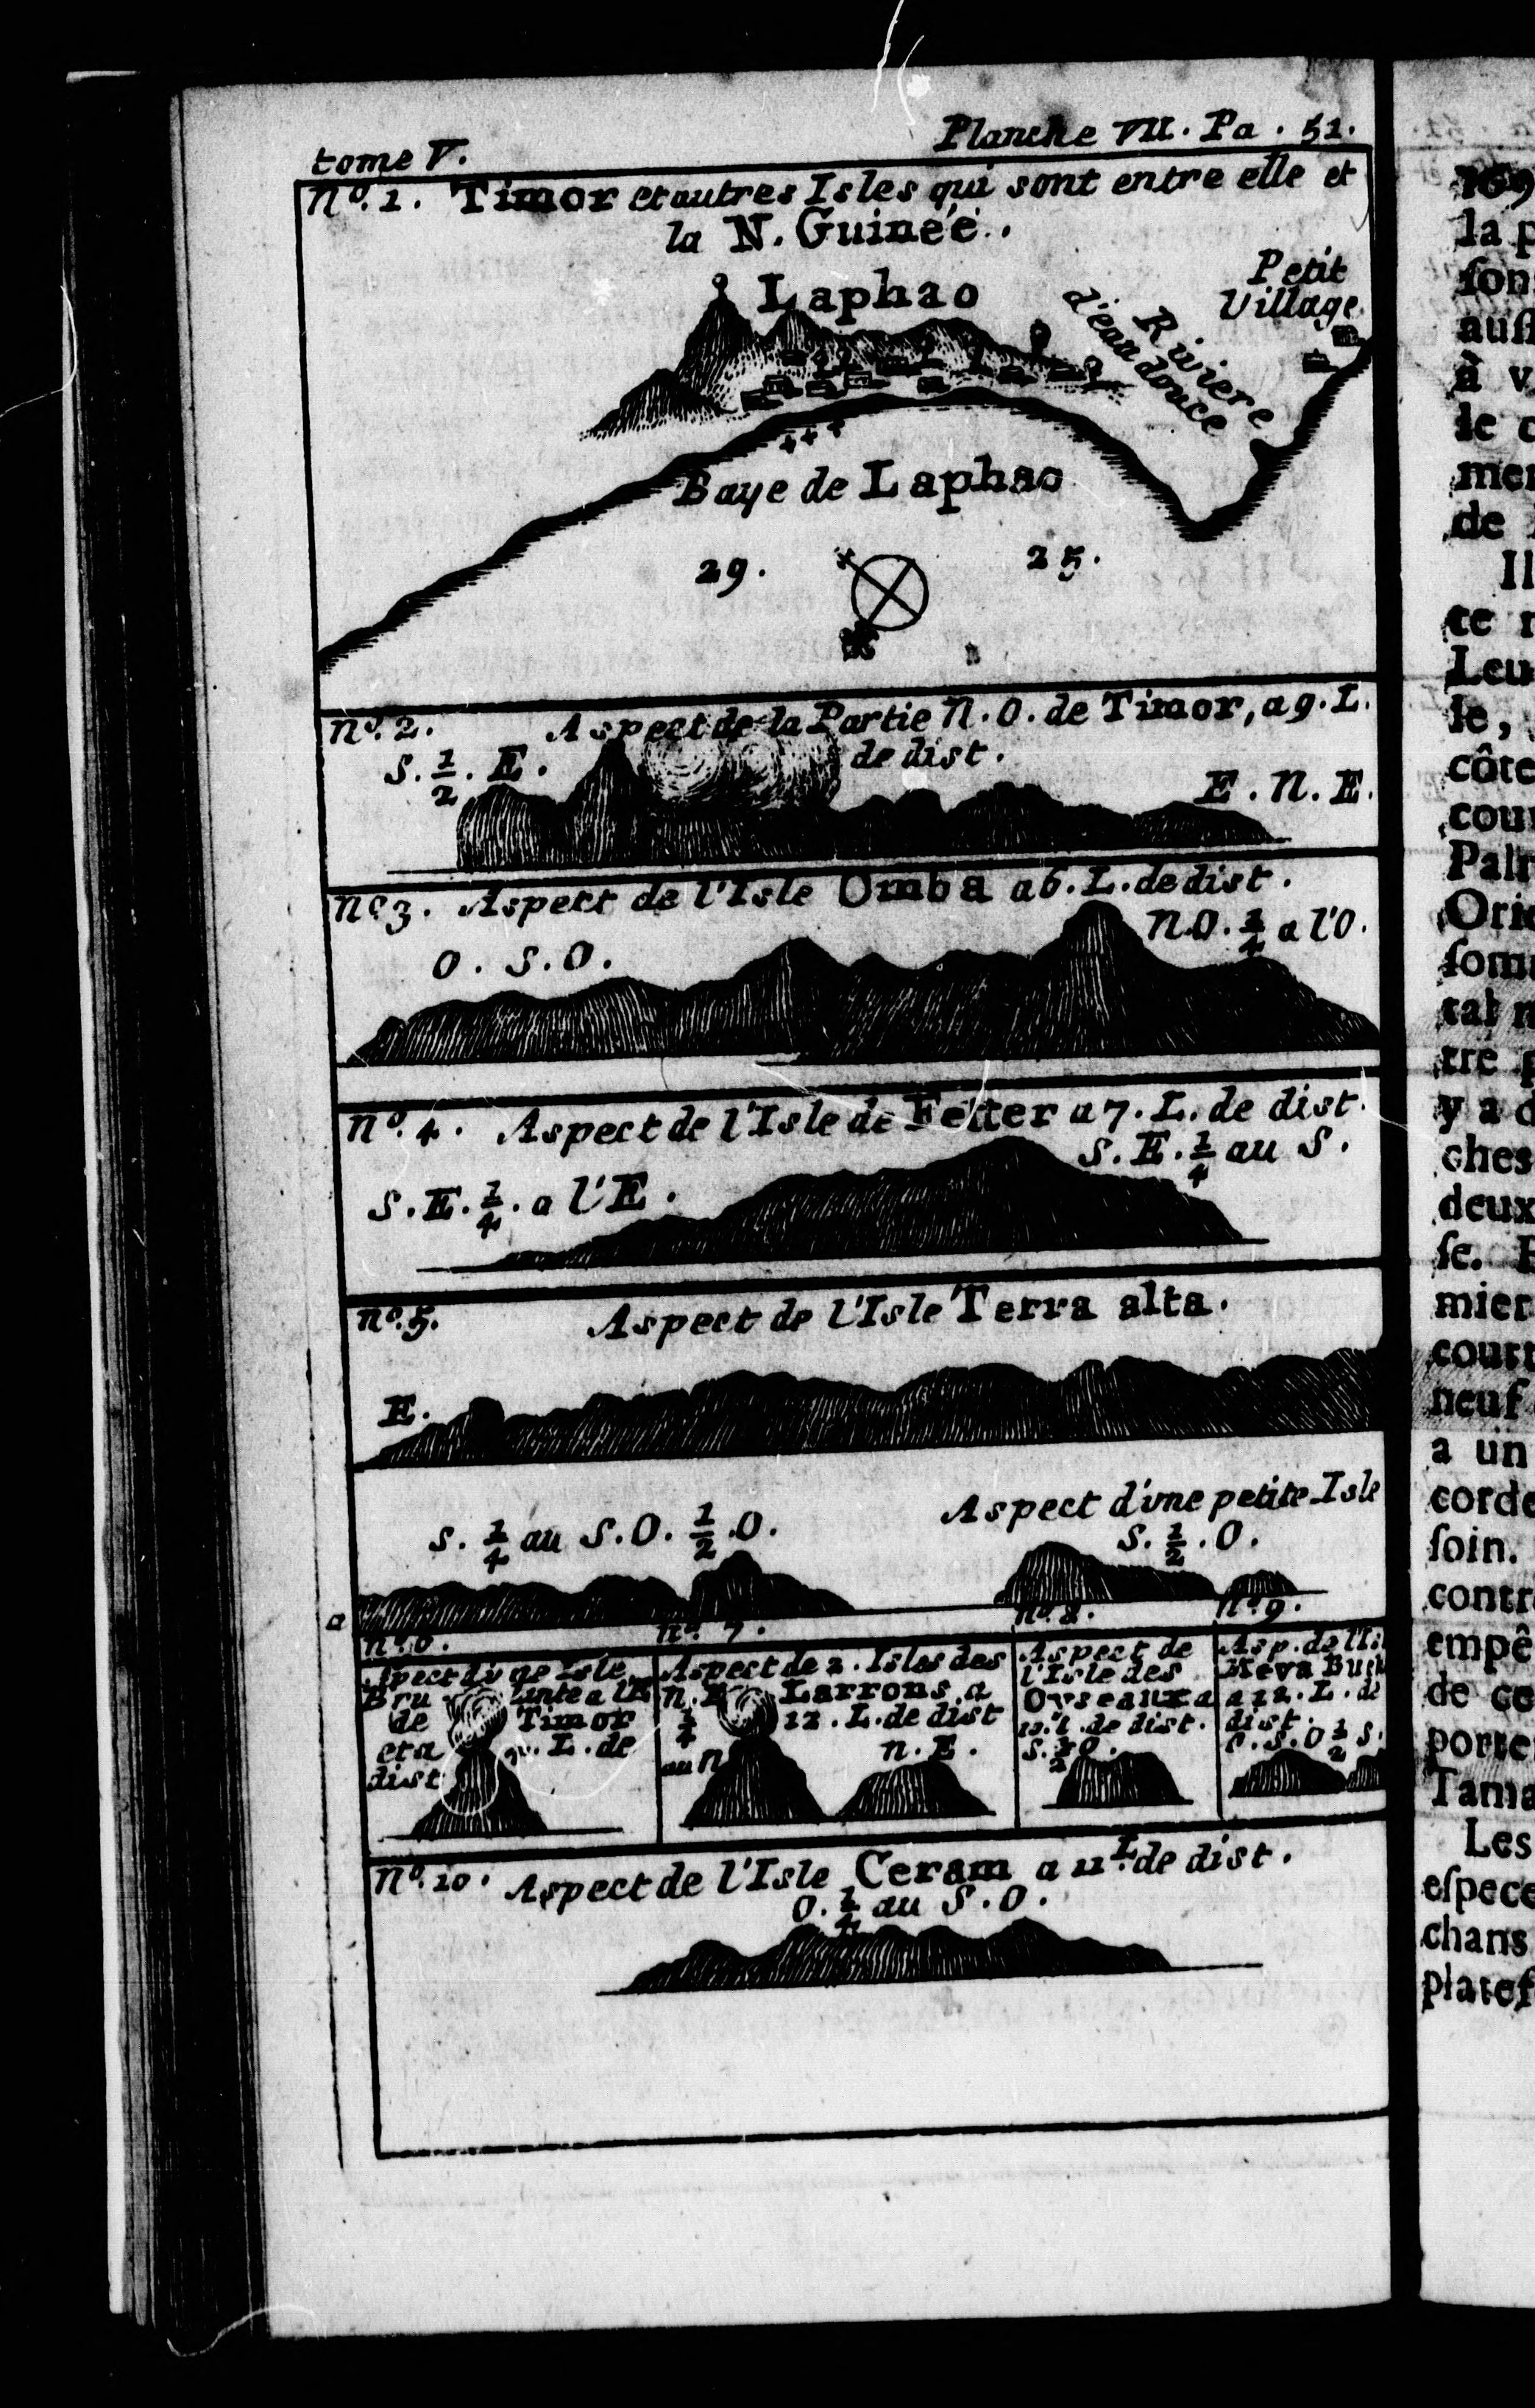 tome V.
Planche VII. Pa. 51.
No. 1. Timor et autres Isles qui sont entre elle et
la N. Guinéé.
Laphao
Petit
Village
Riviere
d'eau douce
Baye de Laphao
29.
25.
No. 2. Aspect de la Partie N. O. de Timor, a 9. L.
de dist.
S. 1/2. E.
E. N. E.
No 3. Aspect de l'Isle Omba a 6. L. de dist.
O. S. O.
N. O. 1/4 a l'O.
No. 4. Aspect de l'Isle de Fetter a 7. L. de dist.
S. E. 1/4 au S.
S. E. 1/4. a l'E.
No. 5. Aspect de l'Isle Terra alta.
E.
Aspect d'une petite Isle
S. 1/4 au S. O. 1/2. O.
S. 1/2. O.
a
No. 6.
Bru
de Timor
et a L. de
dist
No. 7.
Aspect de 2. Isles des
N. E Larrons a
1/4 12. L. de dist
au N
N. E.
No. 8.
Aspect de
l'Isle des
Oyseaux a
de dist.
No. 9.
Asp. de l'Is
a 12. L. de
dist.
1/2 S.
No. 10. Aspect de l'Isle Ceram a 11 L. de dist.
O. 1/4 au S. O.
169
la p
ſon
auſſ
à v
le c
mer
de
Il
te
Leu
le,
côte
cour
Palr
Orie
ſom
tal
tre p
y a
ches
deux
ſe.
mier
court
neuf
a un
corde
ſoin.
contr
empê
de ce
porte
Tama
Les
eſpece
chans
platef